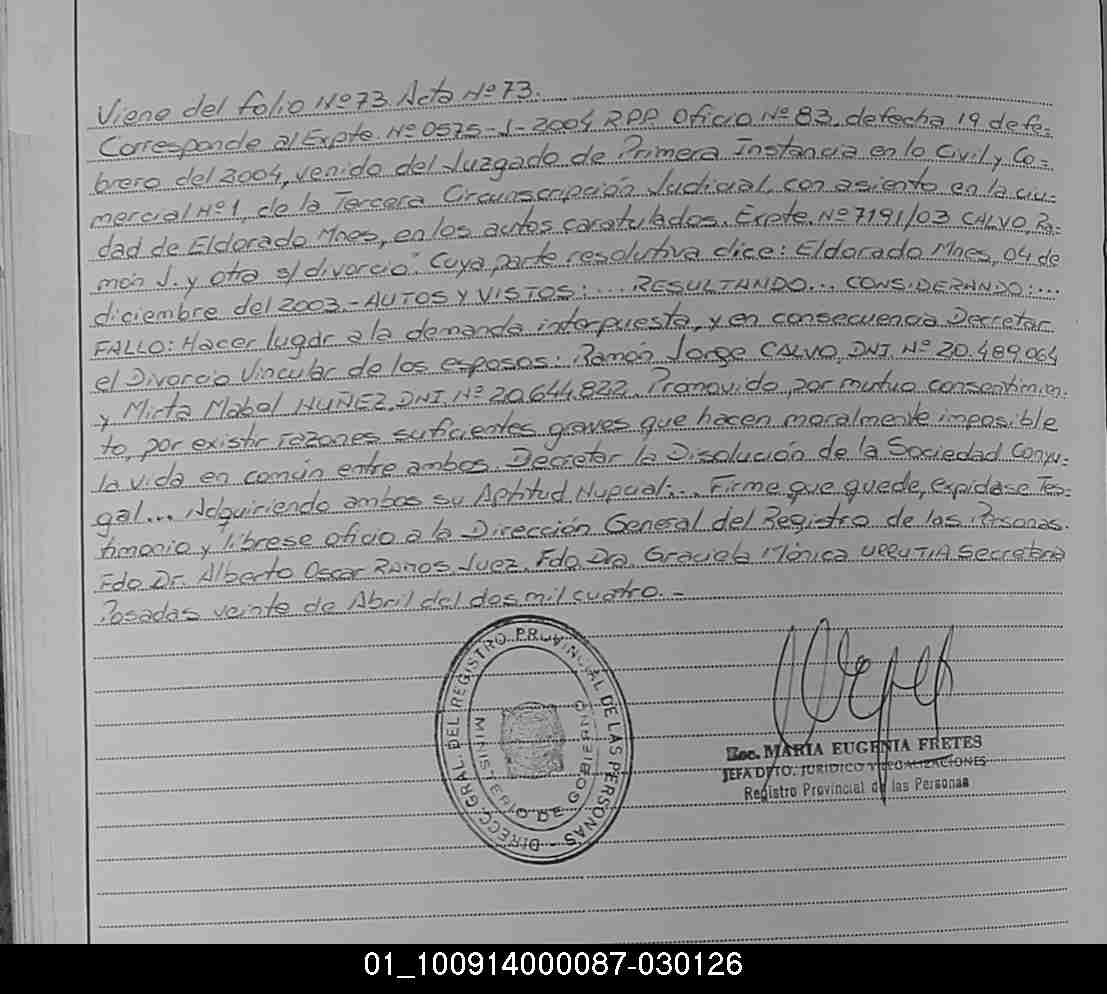 Viene del folio Nº73 Acta Nº73.
Corresponde al Expte. Nº0575-J-2004 RPP. Oficio Nº83. de fecha 19 de fe-
brero del 2004, venido del Juzgado de Primera Instancia en lo Civil y Co-
mercial Nº1, de la Tercera Circunscripción Judicial, con asiento en la ciu-
dad de Eldorado Mnes, en los autos caratulados. Expte. Nº7191/03 CALVO, Ra-
món J. y otra s/ divorcio". Cuya parte resolutiva dice: Eldorado Mnes, 04 de
diciembre del 2003.- AUTOS Y VISTOS:... RESULTANDO... CONSIDERANDO:...
FALLO: Hacer lugar a la demanda interpuesta, y en consecuencia Decretar
el Divorcio Vincular de los esposos: Ramón Jorge CALVO, DNI. Nº 20.489.064
y Mirta Mabel NUÑEZ, DNI. Nº 20.644.822. Promovido, por mutuo consentimien-
to, por existir razones suficientes graves que hacen moralmente imposible
la vida en común entre ambos. Decretar la Disolución de la Sociedad Conyu-
gal... Adquiriendo ambos su Aptitud Nupcial... Firme que quede, expidase Tes-
timonio y librese oficio a la Dirección General del Registro de las Personas.
Fdo Dr. Alberto Oscar RAMOS. Juez. Fdo. Dra. Graciela Mónica URRUTIA Secretaria
Posadas veinte de Abril del dos mil cuatro.-
DIRECC. GRAL. DEL REGISTRO PROVINCIAL DE LAS PERSONAS -
MINISTERIO DE GOBIERNO
Esc. MARIA EUGENIA FRETES
JEFA DPTO. JURIDICO Y LEGALIZACIONES
Registro Provincial de las Personas
01_100914000087-030126